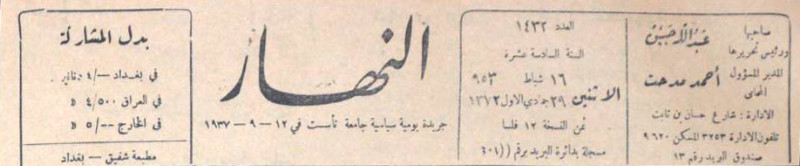 صاحبها
ورئيس تحريرها
عبد الله حسين
المدير المسؤول
المحامي
أحمد مدحت
الادارة : شارع حسان بن ثابت
تلفون الادارة ٣٢٥٣ المسكن ٩٦٢٠
صندوق البريد رقم ١٣
العدد ١٤٣٢
السنة السادسة عشرة
١٦ شباط ٩٥٣
الاثنين ٢٩ جمادي الاول ١٣٧٢
ثمن النسخة ١٢ فلسا
مسجلة بدائرة البريد برقم ((٤٠١
النهار
جريدة يومية سياسية جامعة تأسست في ١٢ – ٩ – ١٩٣٧
بدل المشاركة
في بغداد –/٤ دنانير
في العراق ٤/٥٠٠ D
في الخارج –/٥ D
مطبعة شفيق – بغداد